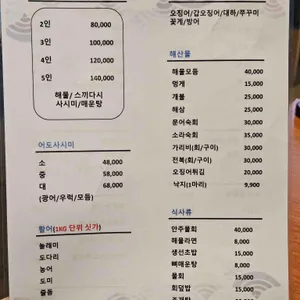 2인 80,000
3인 100,000
4인 120,000
5인 140,000
해물/ 스끼다시
사시미/매운탕
어도사시미
소 48,000
중 58,000
대 68,000
(광어/우럭/모듬)
활어(1KG 단위 싯가)
놀래미
도다리
농어
도미
줄돔
오징어/갑오징어/대하/쭈꾸미
꽃게/방어
해산물
해물모듬 40,000
멍게 15,000
개불 25,000
해삼 25,000
문어숙회 30,000
소라숙회 35,000
가리비(회/구이) 30,000
전복(회/구이) 30,000
오징어튀김 20,000
낙지(1마리) 9,900
식사류
안주물회 40,000
해물라면 8,000
생선초밥 15,000
뼈매운탕 8,000
물회 15,000
회덮밥 15,000